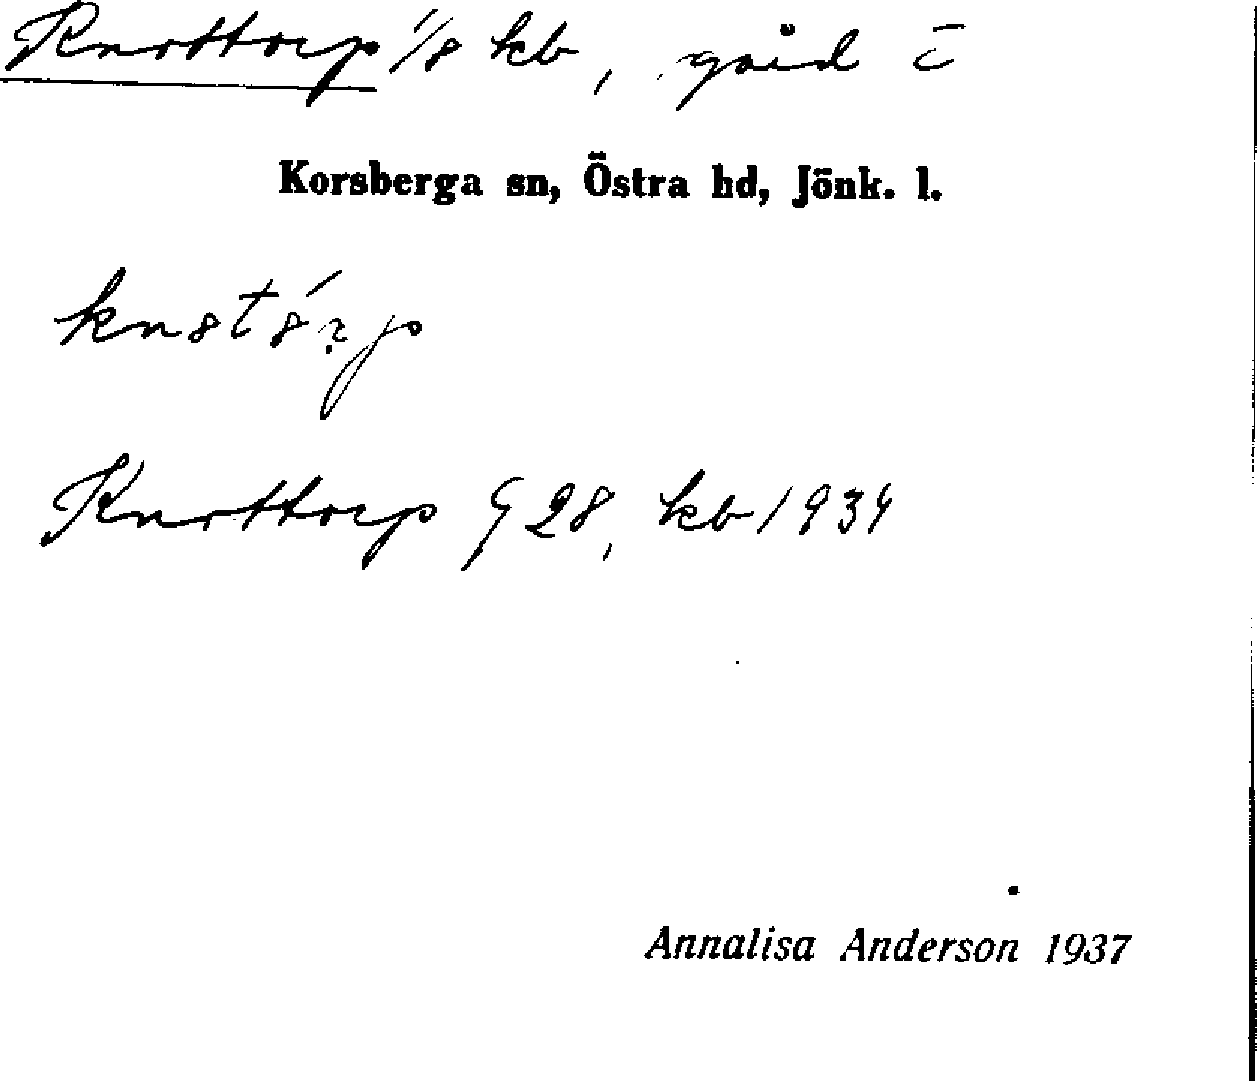 Knottorp 1/8 kb, gård i
Korsberga sn, Östra hd, Jönk. l.
Knottorp G 28, kb 1934
Annalisa Anderson 1937